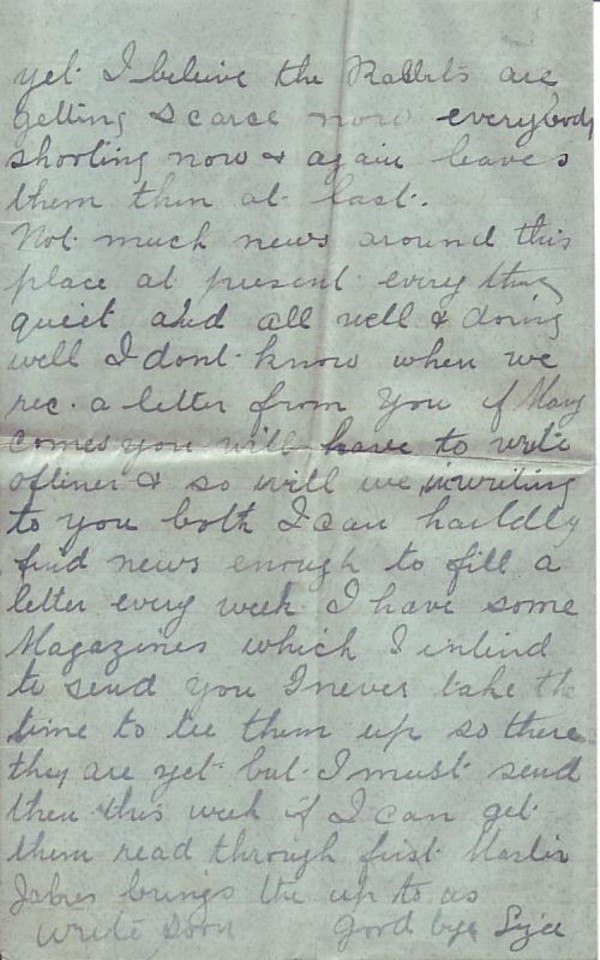 yet. I beleive the Rabbits are
getting scarce now everybody
shooting now & again leaves
them thin at last.
Not much news around this
place at present every thing
quiet and all well & doing
well I dont know when we
rec. a letter from you if Mary
comes you will have to write
oftiner & so will we in writing
to you both I can hardly
find news enough to fill a
letter every week I have some
Magazines which I intend
to send you I never take the
time to tie them up so there
they are yet but I must send
then this week if I can get
them read through first Martin
brings the up to us
write soon Good bye